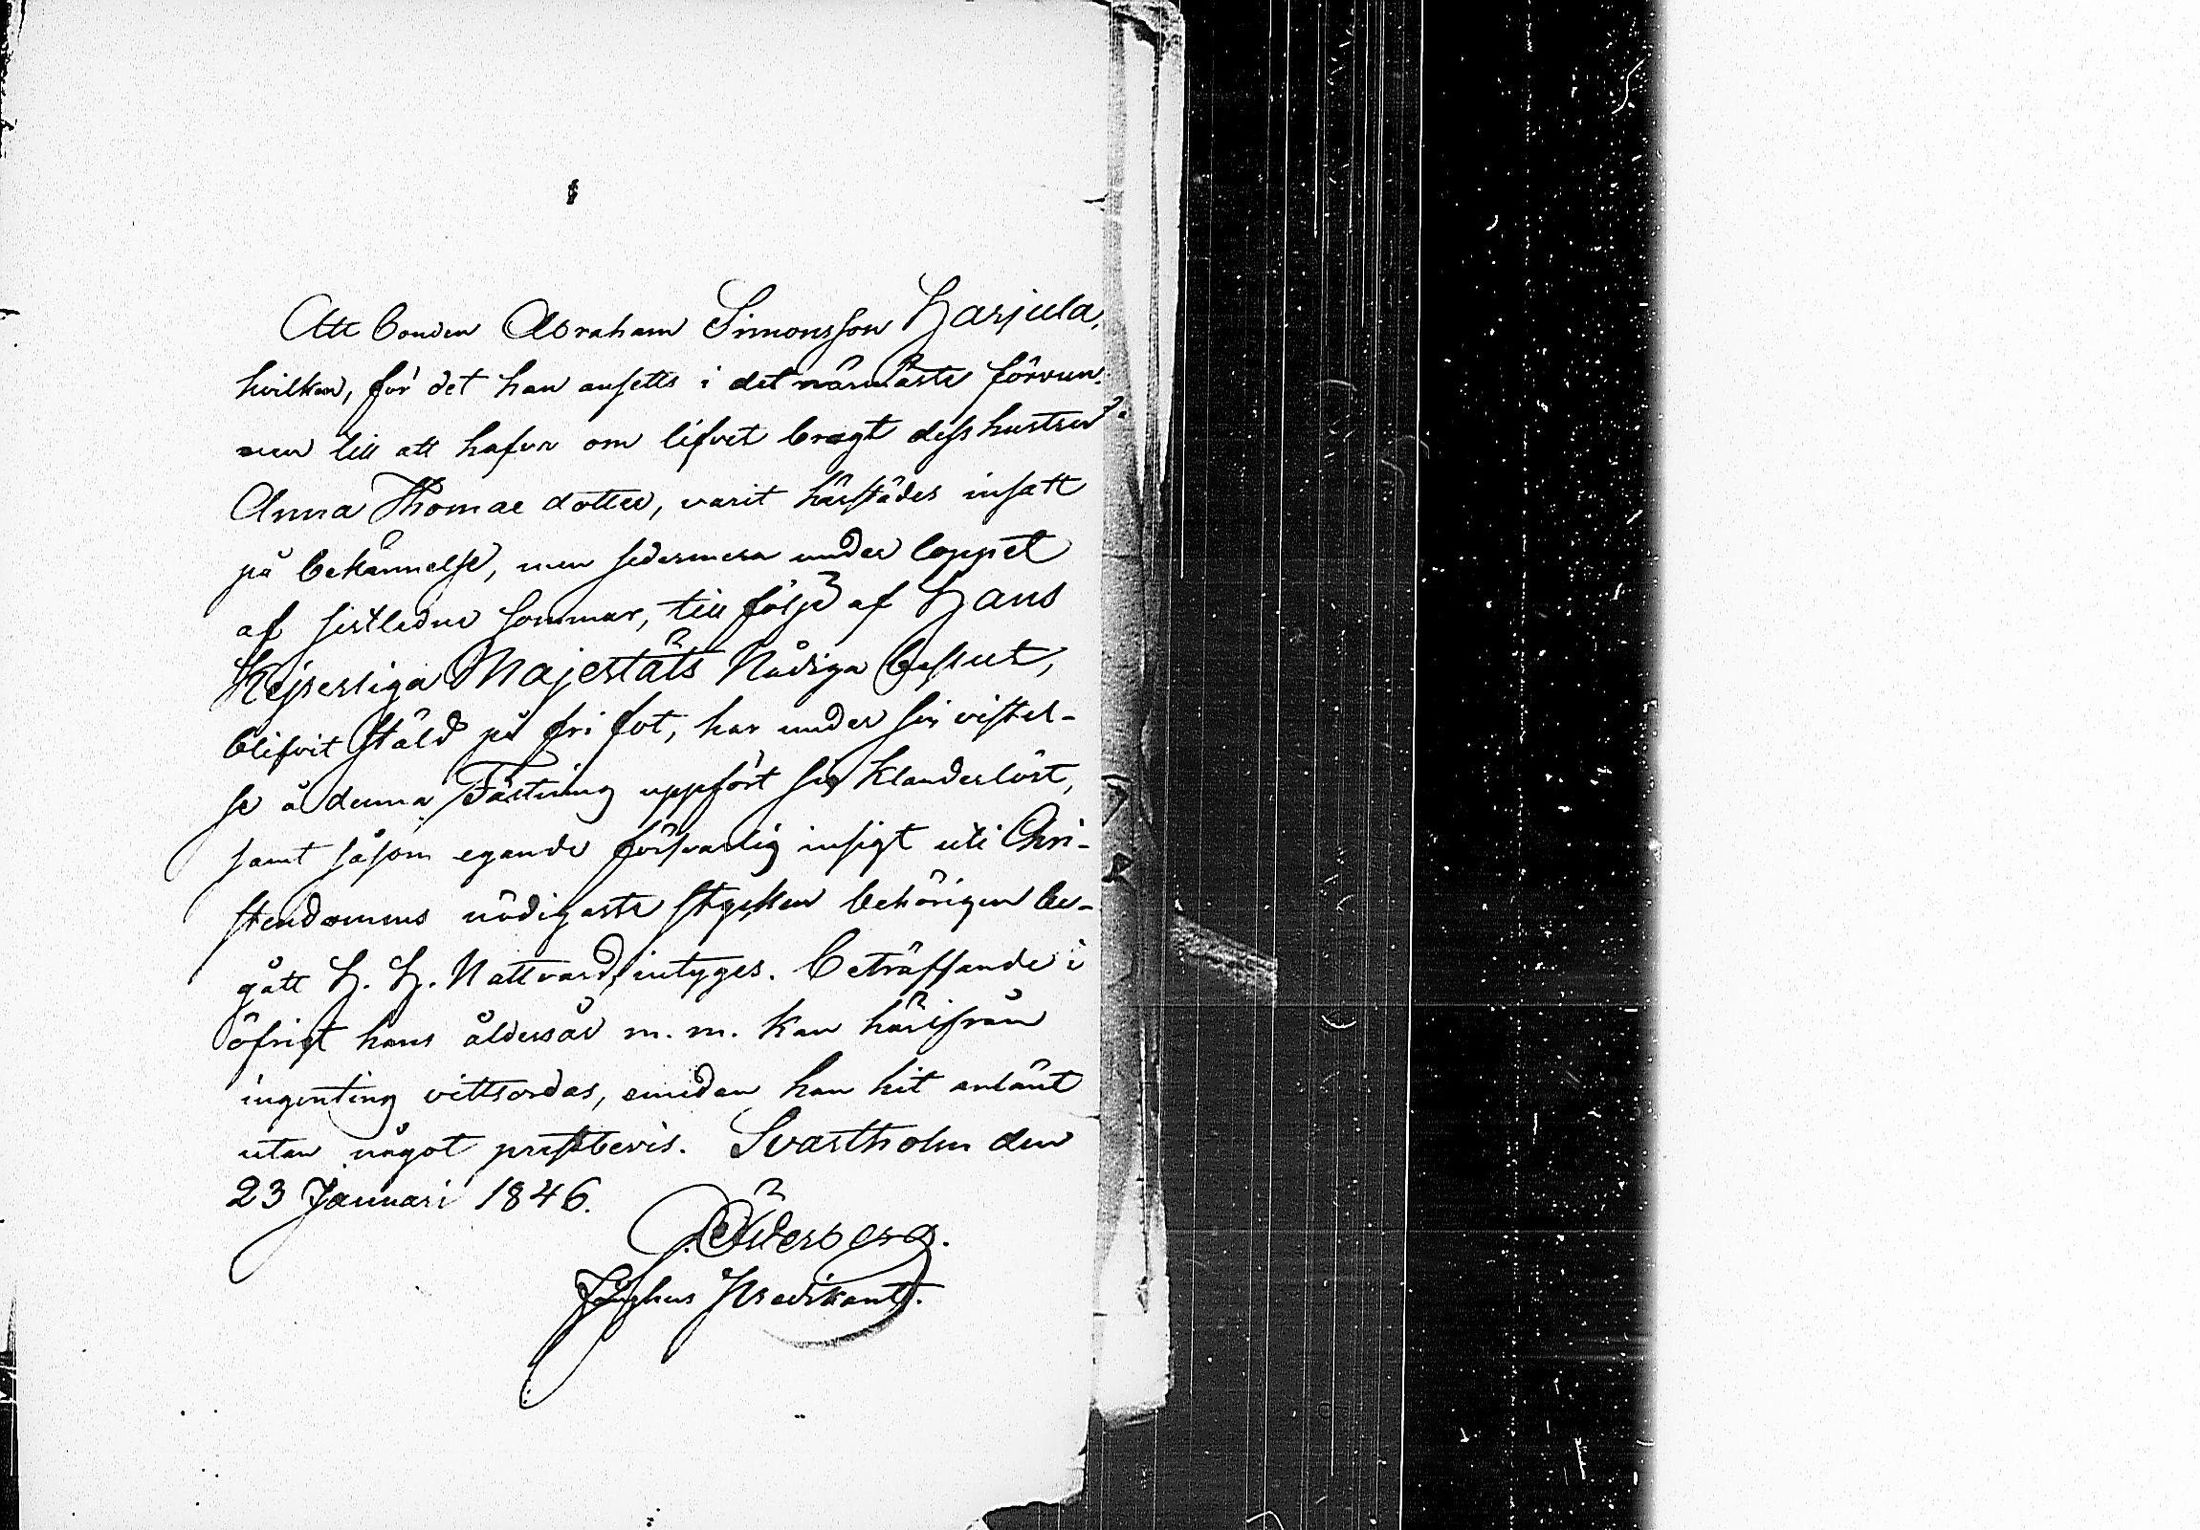 Att bonden Abraham Simonsson Harjula,
hvilken, för det han ansetts i det närmaste förvun-
nen till att hafva om lifvet bragt dess hustru
Anna Thomae dotter, varit härstädes insatt
på bekännelse, men sedermera under loppet
af sistledne sommar, till följe af Hans
Kejserliga Majestäts Nådiga beslut,
blifvit stäld på fri fot, har under sin vistel-
se å denna Fästning uppfört sig klanderlöst,
samt såsom egande försvarlig insigt uti Chri-
stendomens nödigaste stycken behörigen be-
gått H. H. Nattvard, intyges. Beträffande i
öfrigt hans åldersår m. m. kan härifrån
ingenting vittsordas, emedan han hit anländt
utan något prestbevis. Svartholm den
23 Januari 1846.
Predikant.